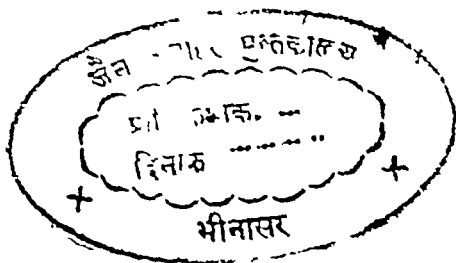 जैन पुस्तकालय
क्रमांक. ...
दिनांक ........
भीनासर